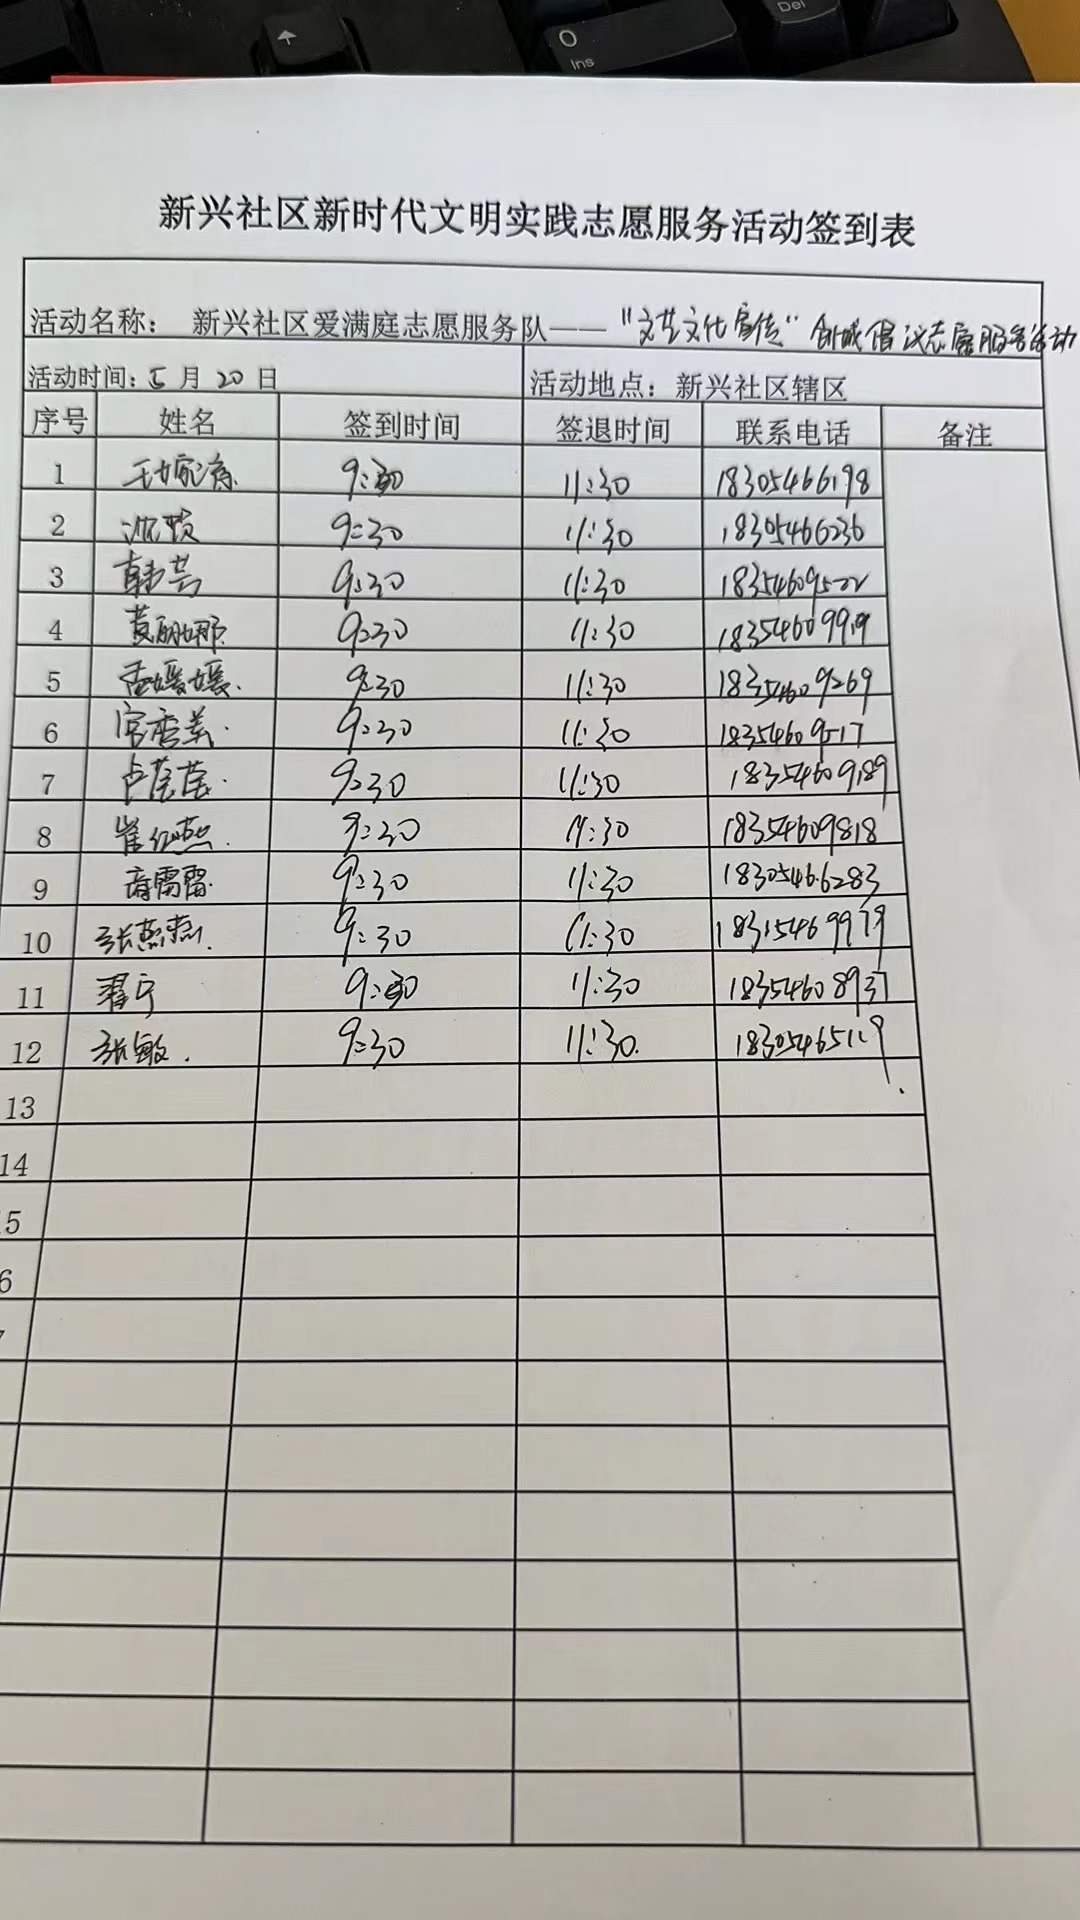 Del
O
Ins
新兴社区新时代文明实践志愿服务活动签到表
活动名称： 新兴社区爱满庭志愿服务队——"文艺文化宣传"创城倡议志愿服务活动
活动时间：5月20日 活动地点：新兴社区辖区
序号 姓名 签到时间 签退时间 联系电话 备注
1 9:30 11:30 18305466198
2 沈顿 9:30 11:30 18305466236
3 韩芸 9:30 11:30
4 黄丽娜 9:30 11:30 18354609919
5 孟媛媛 9:30 11:30 18354609269
6 宫秀美 9:30 11:30 18354609517
7 卢莹莹 9:30 11:30 18354609189
8 崔红燕 9:30 11:30 18354609818
9 9:30 11:30 18305466283
10 张燕燕 9:30 11:30 18315469979
11 翟宁 9:30 11:30 18354608937
12 张敏 9:30 11:30 18305465119
13
14
5
6